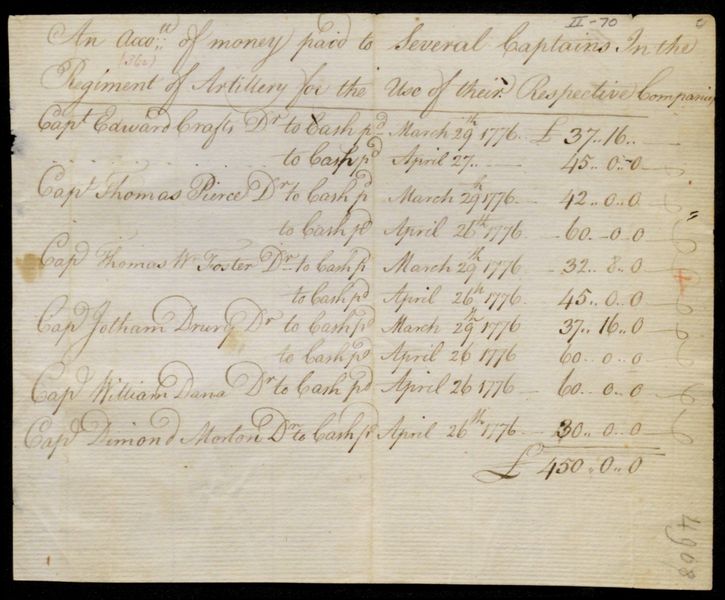 II-70
An Acco:tt of money paid to Several Captains In the
(362)
Regiment of Artillery for the Use of their Respective Companies
Capt Edward Crafts Dr to Cash pd March 29th 1776. £ 37..16..
to Cash pd April 27.. 45..0..0
Capt Thomas Pierce Dr to Cash pd March 29th 1776 42..0..0
to Cash pd April 26th 1776 60..0..0
Capt Thomas Wm Foster Dr to Cash pd March 29th 1776 32..8..0
to Cash pd April 26th 1776 45..0..0
Capt Jotham Drury Dr to Cash pd March 29th 1776 37..16..0
to Cash pd April 26 1776 60..0..0
Capt William Dana Dr to Cash pd April 26 1776 60..0..0
Capt Dimond Morton Dr to Cash pd April 26th 1776 30..0..0
£ 450..0..0
4908